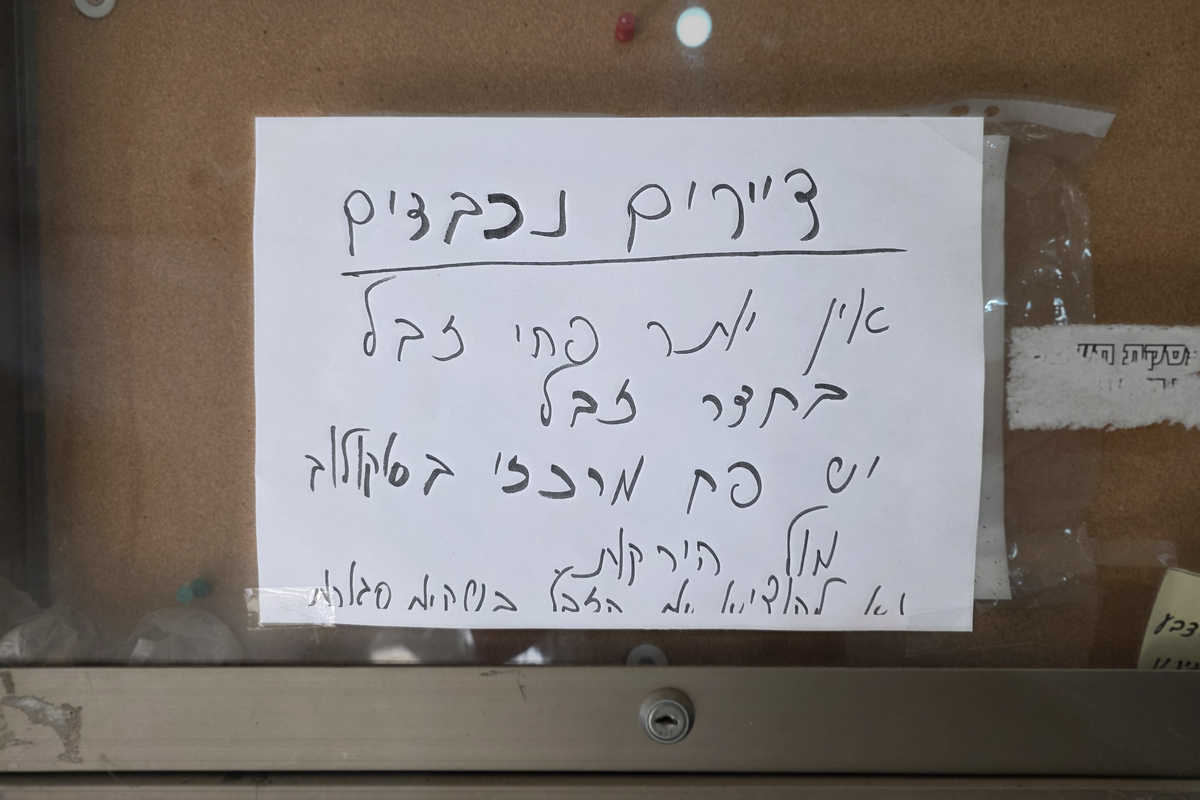 דיירים נכבדים
אין יותר פחי זבל
בחדר זבל
יש פח מרכזי בסוקולוב
מול הירקות
נא להוציא את הזבל בשקית סגורה
צבע